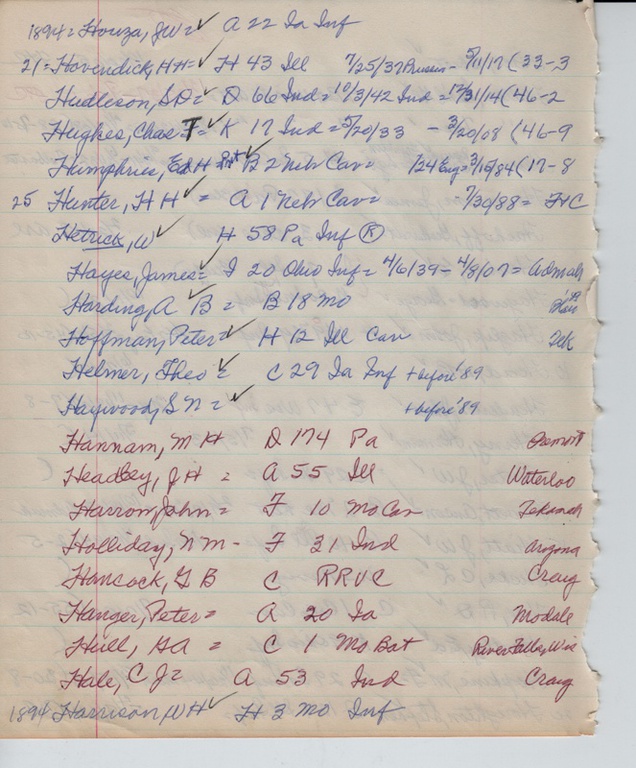 1894= Houza, JW= ✓ A 22 Ia Inf
21= Hovendick, HH= ✓ H 43 Ill 7/25/37 Prussia - 5/11/17 (33-3
Hudleson, SD= ✓ D 66 Ind = 10/3/42 Ind = 12/31/14 (46-2
Hughes, Chas F= ✓ K 17 Ind = 5/20/33 - 3/20/08 (46-9
Humphries, Ed H ✓ B 2 Nebr Cav= 1/24 Eng= 3/15/84 (17-8
25 Hunter, H H ✓ = A 1 Nebr Cav= -7/30/88=
Hetrick, W ✓ H 58 Pa Inf Ⓡ
Hayes, James= ✓ I 20 Ohio Inf= 4/6/39- 4/8/07= Admah
Harding, A B = ✓ B 18 Mo
Hoffman, Peter= ✓ H 12 Ill Cav Dek
Helmer, Theo = ✓ C 29 Ia Inf + before '89
Haywood, S N = ✓ + before '89
Hannam, M H D 174 Pa
Headley, J H = A 55 Ill Waterloo
Harrow, John = F 10 Mo Cav Tekamah
Holliday, N M - F 31 Ind Arizona
Hancock, G B C RRVC Craig
Hanger, Peter= A 20 Ia Modale
Hull, GA = C 1 Mo Bat River Falls, Wis
Hale, C J= A 53 Ind Craig
1894 Harrison, WH ✓ H 3 Mo Inf